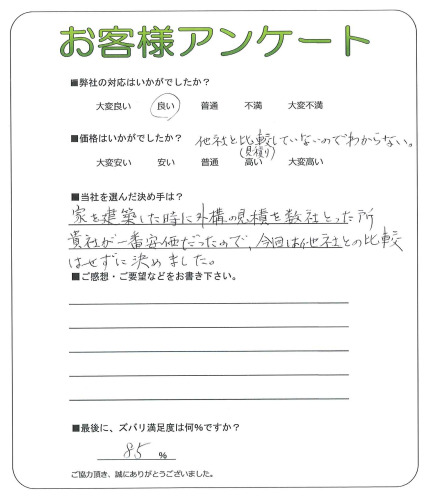 お客様アンケート
■弊社の対応はいかがでしたか？
大変良い 良い 普通 不満 大変不満
■価格はいかがでしたか？ 他社と比較していないのでわからない。
(見積り)
大変安い 安い 普通 高い 大変高い
■当社を選んだ決め手は？
家を建築した時に外構の見積を数社とった所
貴社が一番安価だったので、今回は他社との比較
はせずに決めました。
■ご感想・ご要望などをお書き下さい。
■最後に、ズバリ満足度は何％ですか？
85 %
ご協力頂き、誠にありがとうございました。